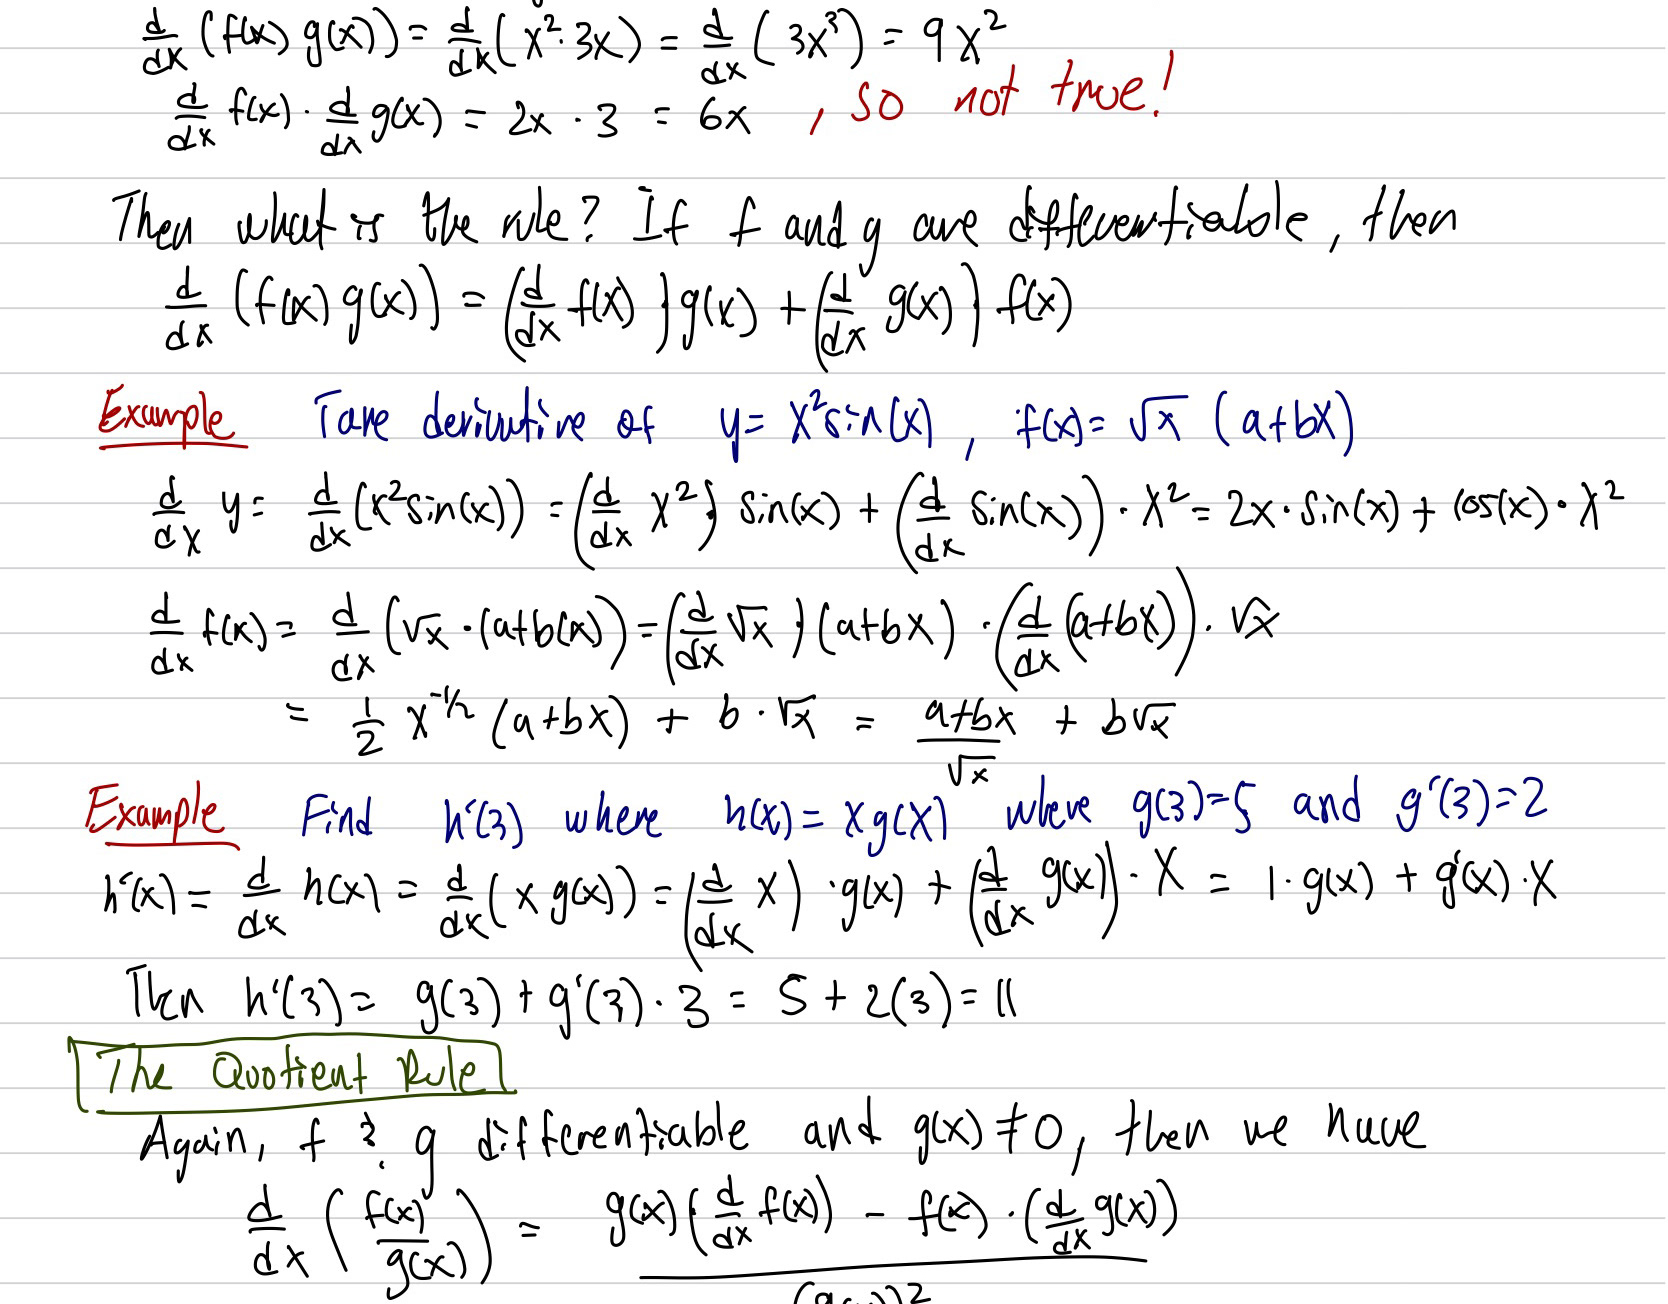 d/dx (f(x) g(x)) = d/dx (x²·3x) = d/dx (3x³) = 9x²
d/dx f(x) · d/dx g(x) = 2x · 3 = 6x , so not true!
Then what is the rule? If f and g are differentiable, then
d/dx (f(x) g(x)) = (d/dx f(x)) g(x) + (d/dx g(x)) f(x)
Example Take derivative of y = x²sin(x) , f(x) = √x (a+bx)
d/dx y = d/dx (x²sin(x)) = (d/dx x²) sin(x) + (d/dx sin(x)) · x² = 2x · sin(x) + cos(x) · x²
d/dx f(x) = d/dx (√x · (a+b(x)) = (d/dx √x) (a+bx) · (d/dx (a+bx)) · √x
= 1/2 x^(-1/2) (a+bx) + b · √x = (a+bx)/√x + b√x
Example Find h'(3) where h(x) = x g(x) where g(3)=5 and g'(3)=2
h'(x) = d/dx h(x) = d/dx (x g(x)) = (d/dx x) · g(x) + (d/dx g(x)) · x = 1 · g(x) + g'(x) · x
Then h'(3) = g(3) + g'(3) · 3 = 5 + 2(3) = 11
The Quotient Rule
Again, f & g differentiable and g(x) ≠ 0, then we have
d/dx (f(x)/g(x)) = g(x) (d/dx f(x)) - f(x) · (d/dx g(x))
(g(x))²